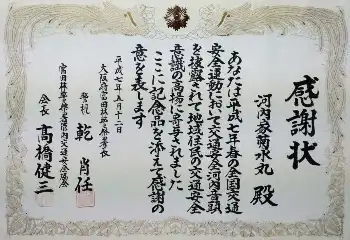 感謝状
河内家菊水丸 殿
あなたは平成七年春の全国交通
安全運動において交通安全河内音頭
を披露されて地域住民の交通安全
意識の高揚に寄与されました
ここに記念品を添えて感謝の
意を表します
平成七年五月十二日
大阪府富田林警察署長
警視 乾 肖任
富田林警察署管内交通安全協会
会長 高橋健三